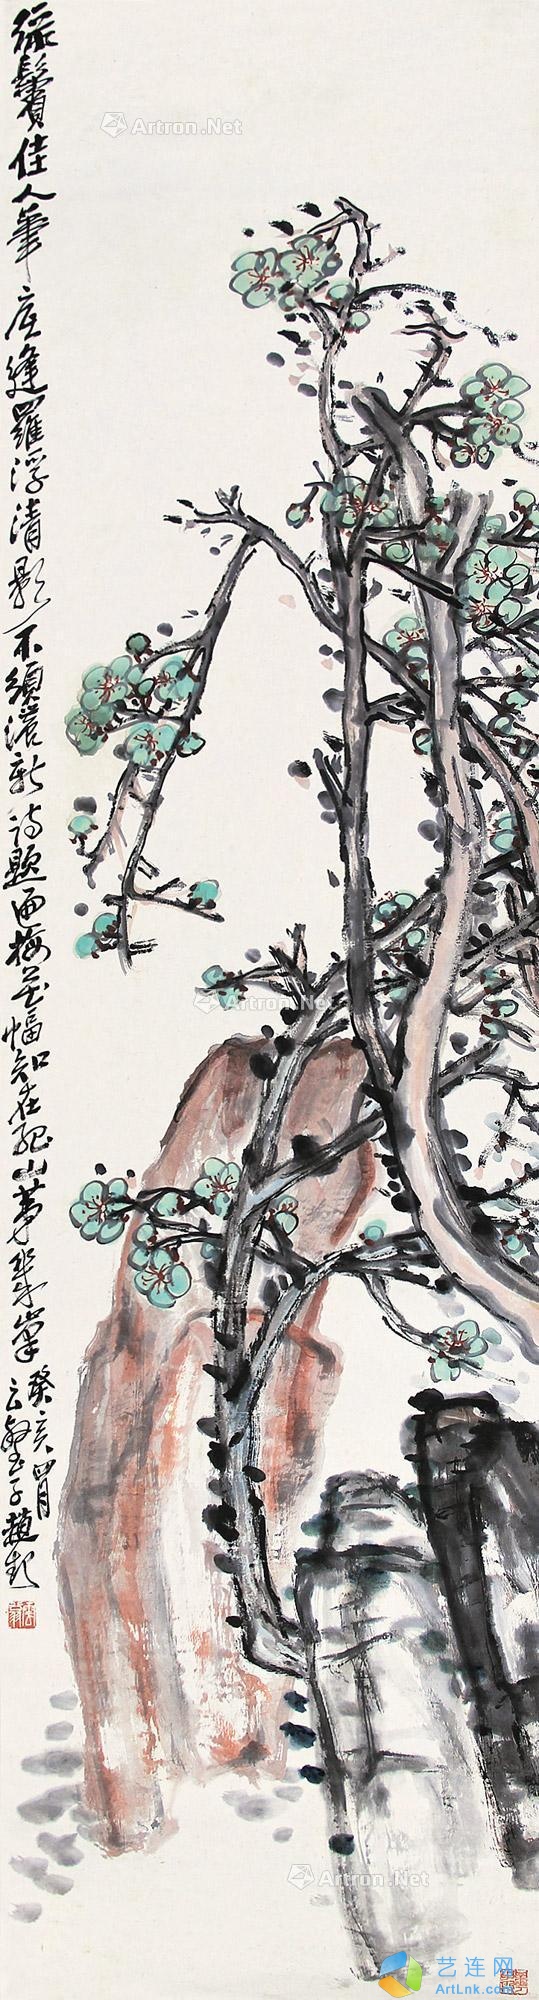 綠鬢佳人筆底逢羅浮清影不須濃新詩題西梅花幅知在孤山第幾峯
癸亥四月
云壑子趙起
Artron.Net
Artron.Net
Artron.Net
艺连网
ArtLnk.com